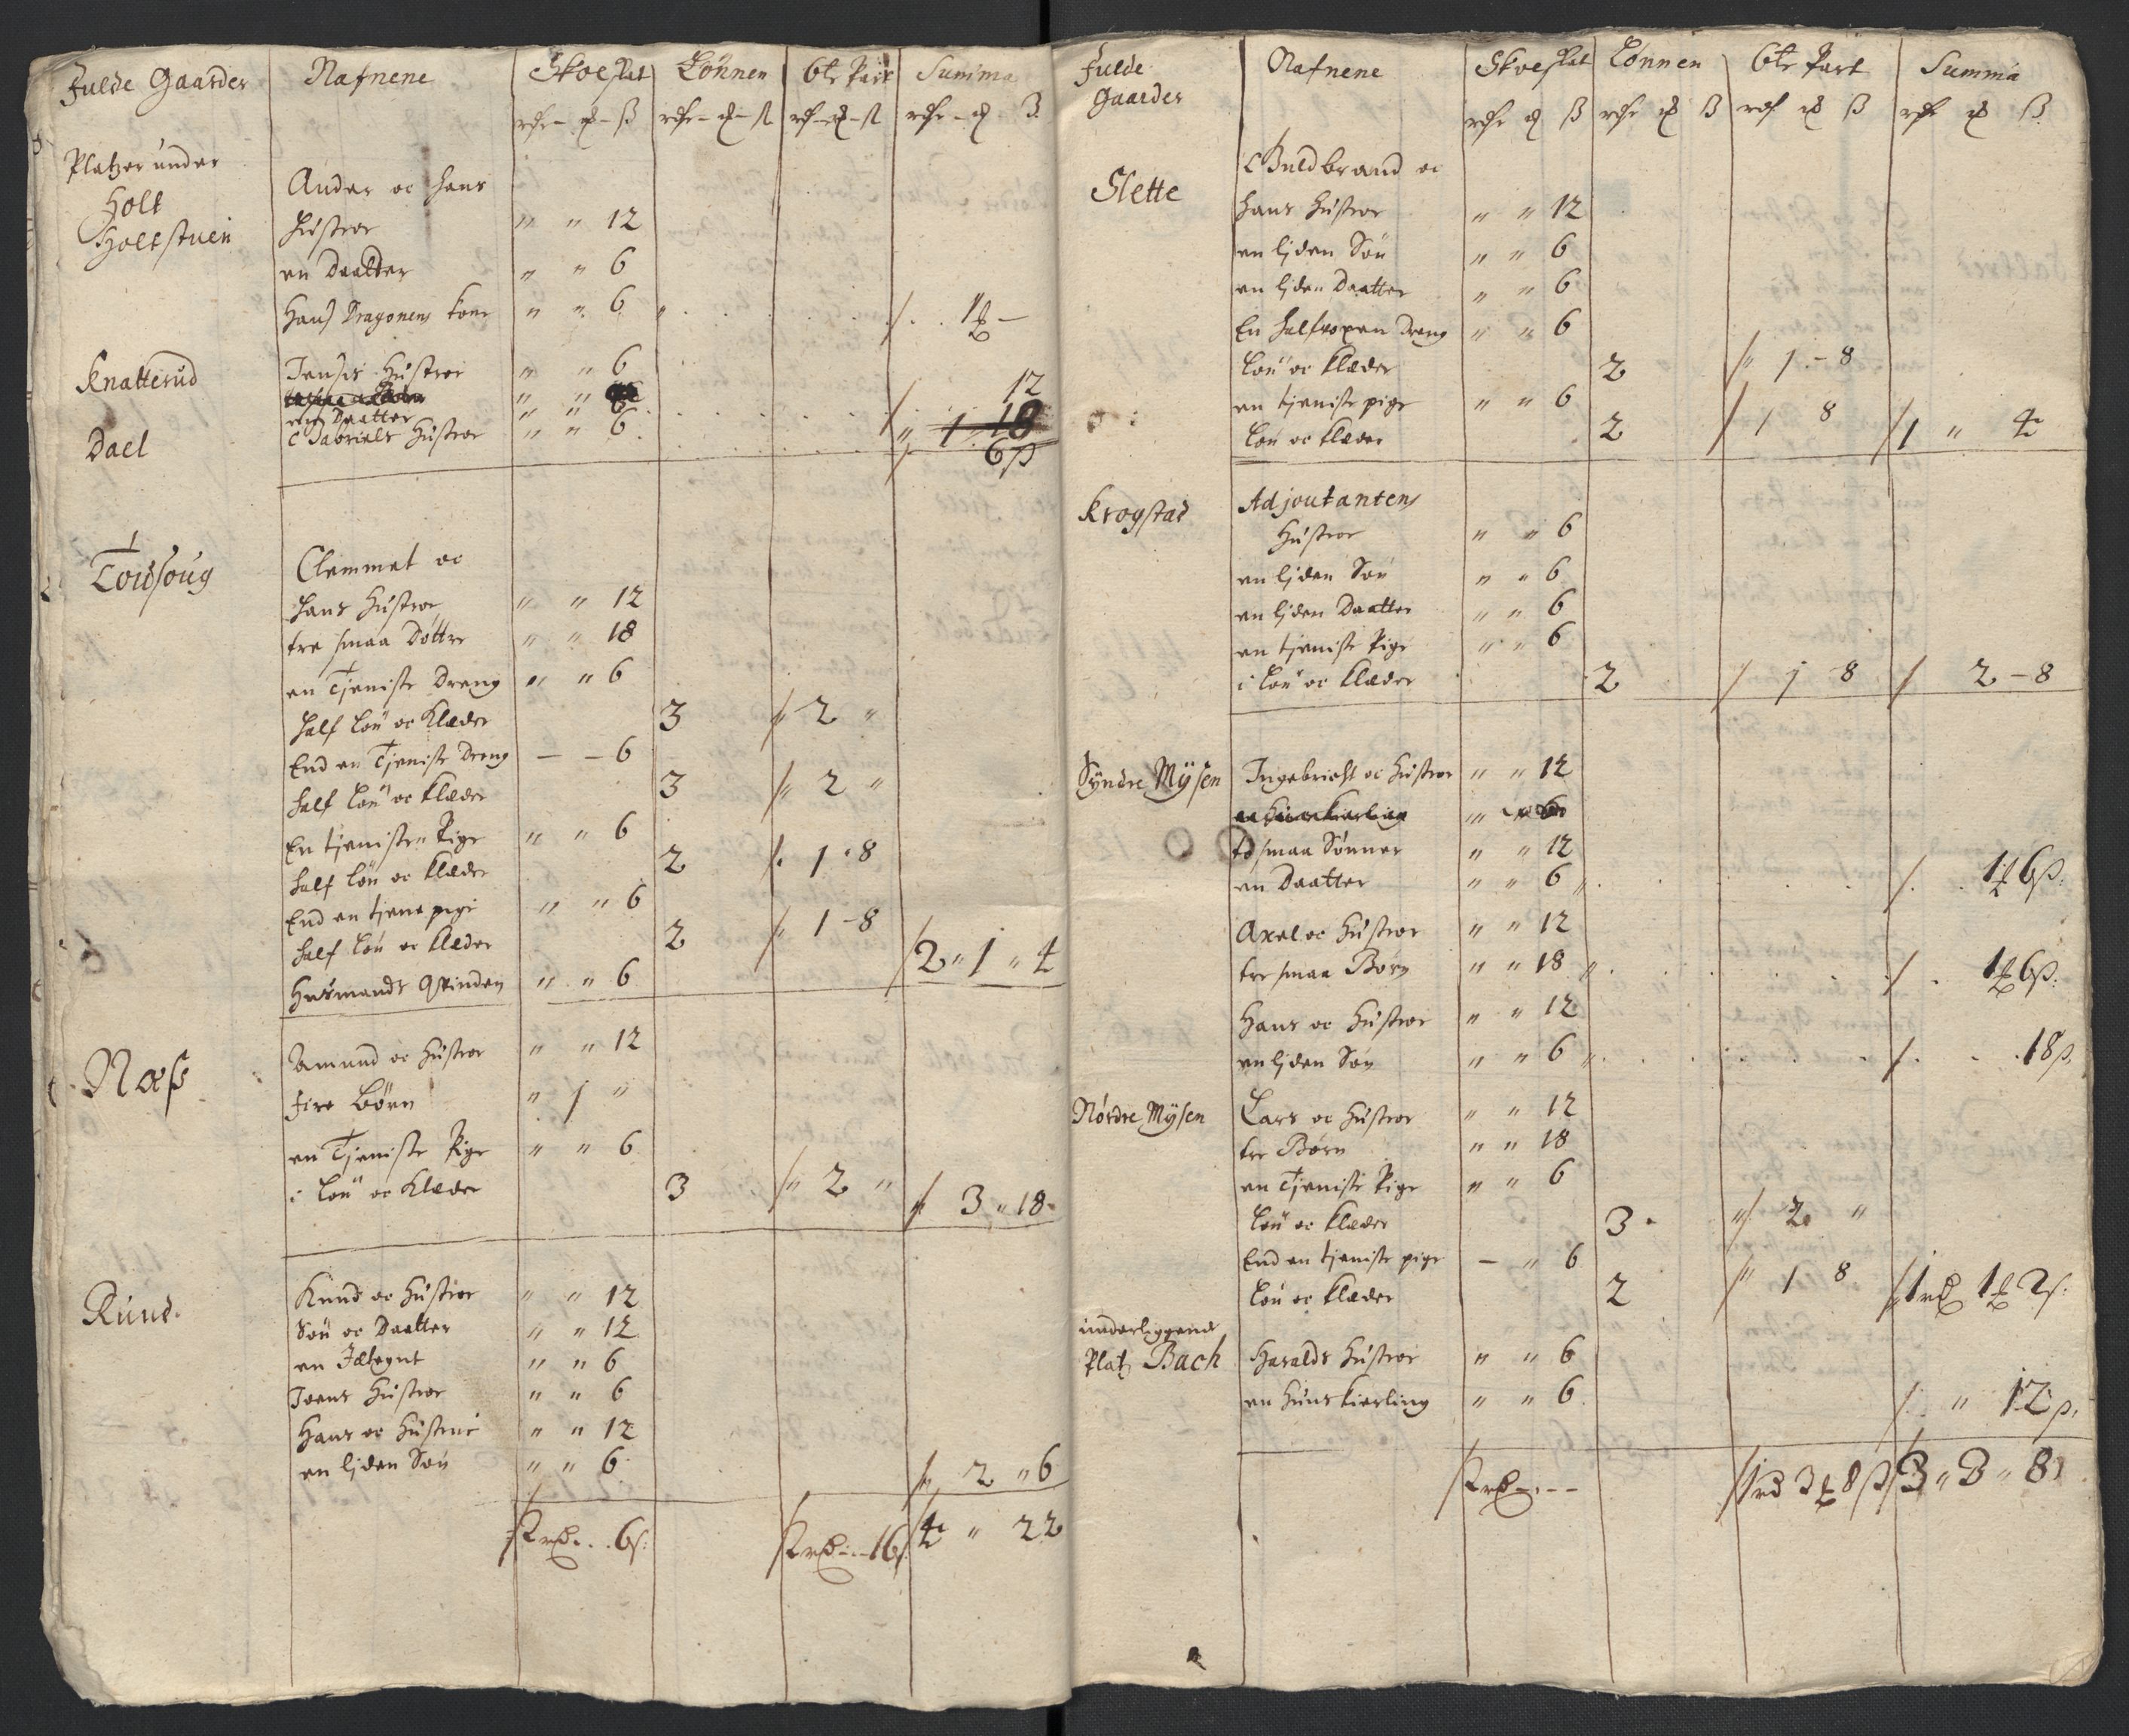 Fulde Gaarder Nafnene Skoeskat Lönnen 6te Part Summa
Platzer under Ander oc hans
Holt
Holtstuen Hustroe " " 12
en Daatter " " 6
Hans Dragonens kone " " 6 1 -
Knatterud Jensis Hustroe " " 6 12
Daatter " "
Dael Gabriels Hustroe " " 6 6 ß
1
Clemmet oc
hans Hustroe " " 12
tre smaa Döttre " " 18
en Tjeniste Dreng " " 6
half Lön oc Klæder 3 " 2 "
End en Tjeniste Dreng - - 6
half Lön oc klæder 3 " 2 "
En tjenisten Pige " " 6
half Lön oc klæder 2 1 8
End en tjene pige " " 6
half Lön oc klæder 2 " 1 - 8
Husmands Qvinden " " 6 2 " 1 " 4
Næss Amund oc Hustroe " " 12
fire Börn " 1 "
en Tjeniste Pige " " 6
i Lön oc Klæder 3 " 2 " 3 " 18
Rund Knud oc Hustroe " " 12
Sön oc Daatter " " 12
en " " 6
Joens Hustroe " " 6
Hans oc Hustrue " " 12
en liden Sön " " 6 " 2 " 6
2 rd . . 6 ß 2 rd - . - 16 ß 4 " 22
Fulde
Gaarder Nafnene Skoeskat Lönnen 6te Part Summa
Slette Guldbrand oc
hans Hustroe " " 12
en liden Sön " " 6
en liden Daatter " " 6
En halfvoxen Dreng " " 6
Lön oc klæder 2 " 1 - 8
en tjeniste pige " " 6
Lön oc klæder 2 1 8 1 " 4
Krogstad Adjoutantens
Hustroe " " 6
en liden Sön " " 6
en liden Daatter " " 6
en tjeniste Pige " " 6
i Lön oc klæder 2 1 8 2 - 8
Syndre Mÿsen Ingebricht oc Hustroe " " 12
to smaa Sönner " " 12
en Daatter " " 6 1 6 ß
Axel oc Hustroe " " 12
tre smaa Börn " " 18 1 6 ß
Hans oc Hustroe " " 12
en liden Sön " " 6 18 ß
Nördre Mÿsen Lars oc Hustroe " " 12
tre Börn " " 18
en Tjeniste Pige " " 6
Lön oc klæder 3 " 2 "
End en tjeniste pige - " 6
Lön oc klæder 2 " 1 8 1 rd 1 2 ß
underliggende
Platz Bach Haralds Hustroe " " 6
en Huuskierling " " 6 " 12 ß
2 rd - . - - 1 rd 3 8 ß 3 " 3 " 8